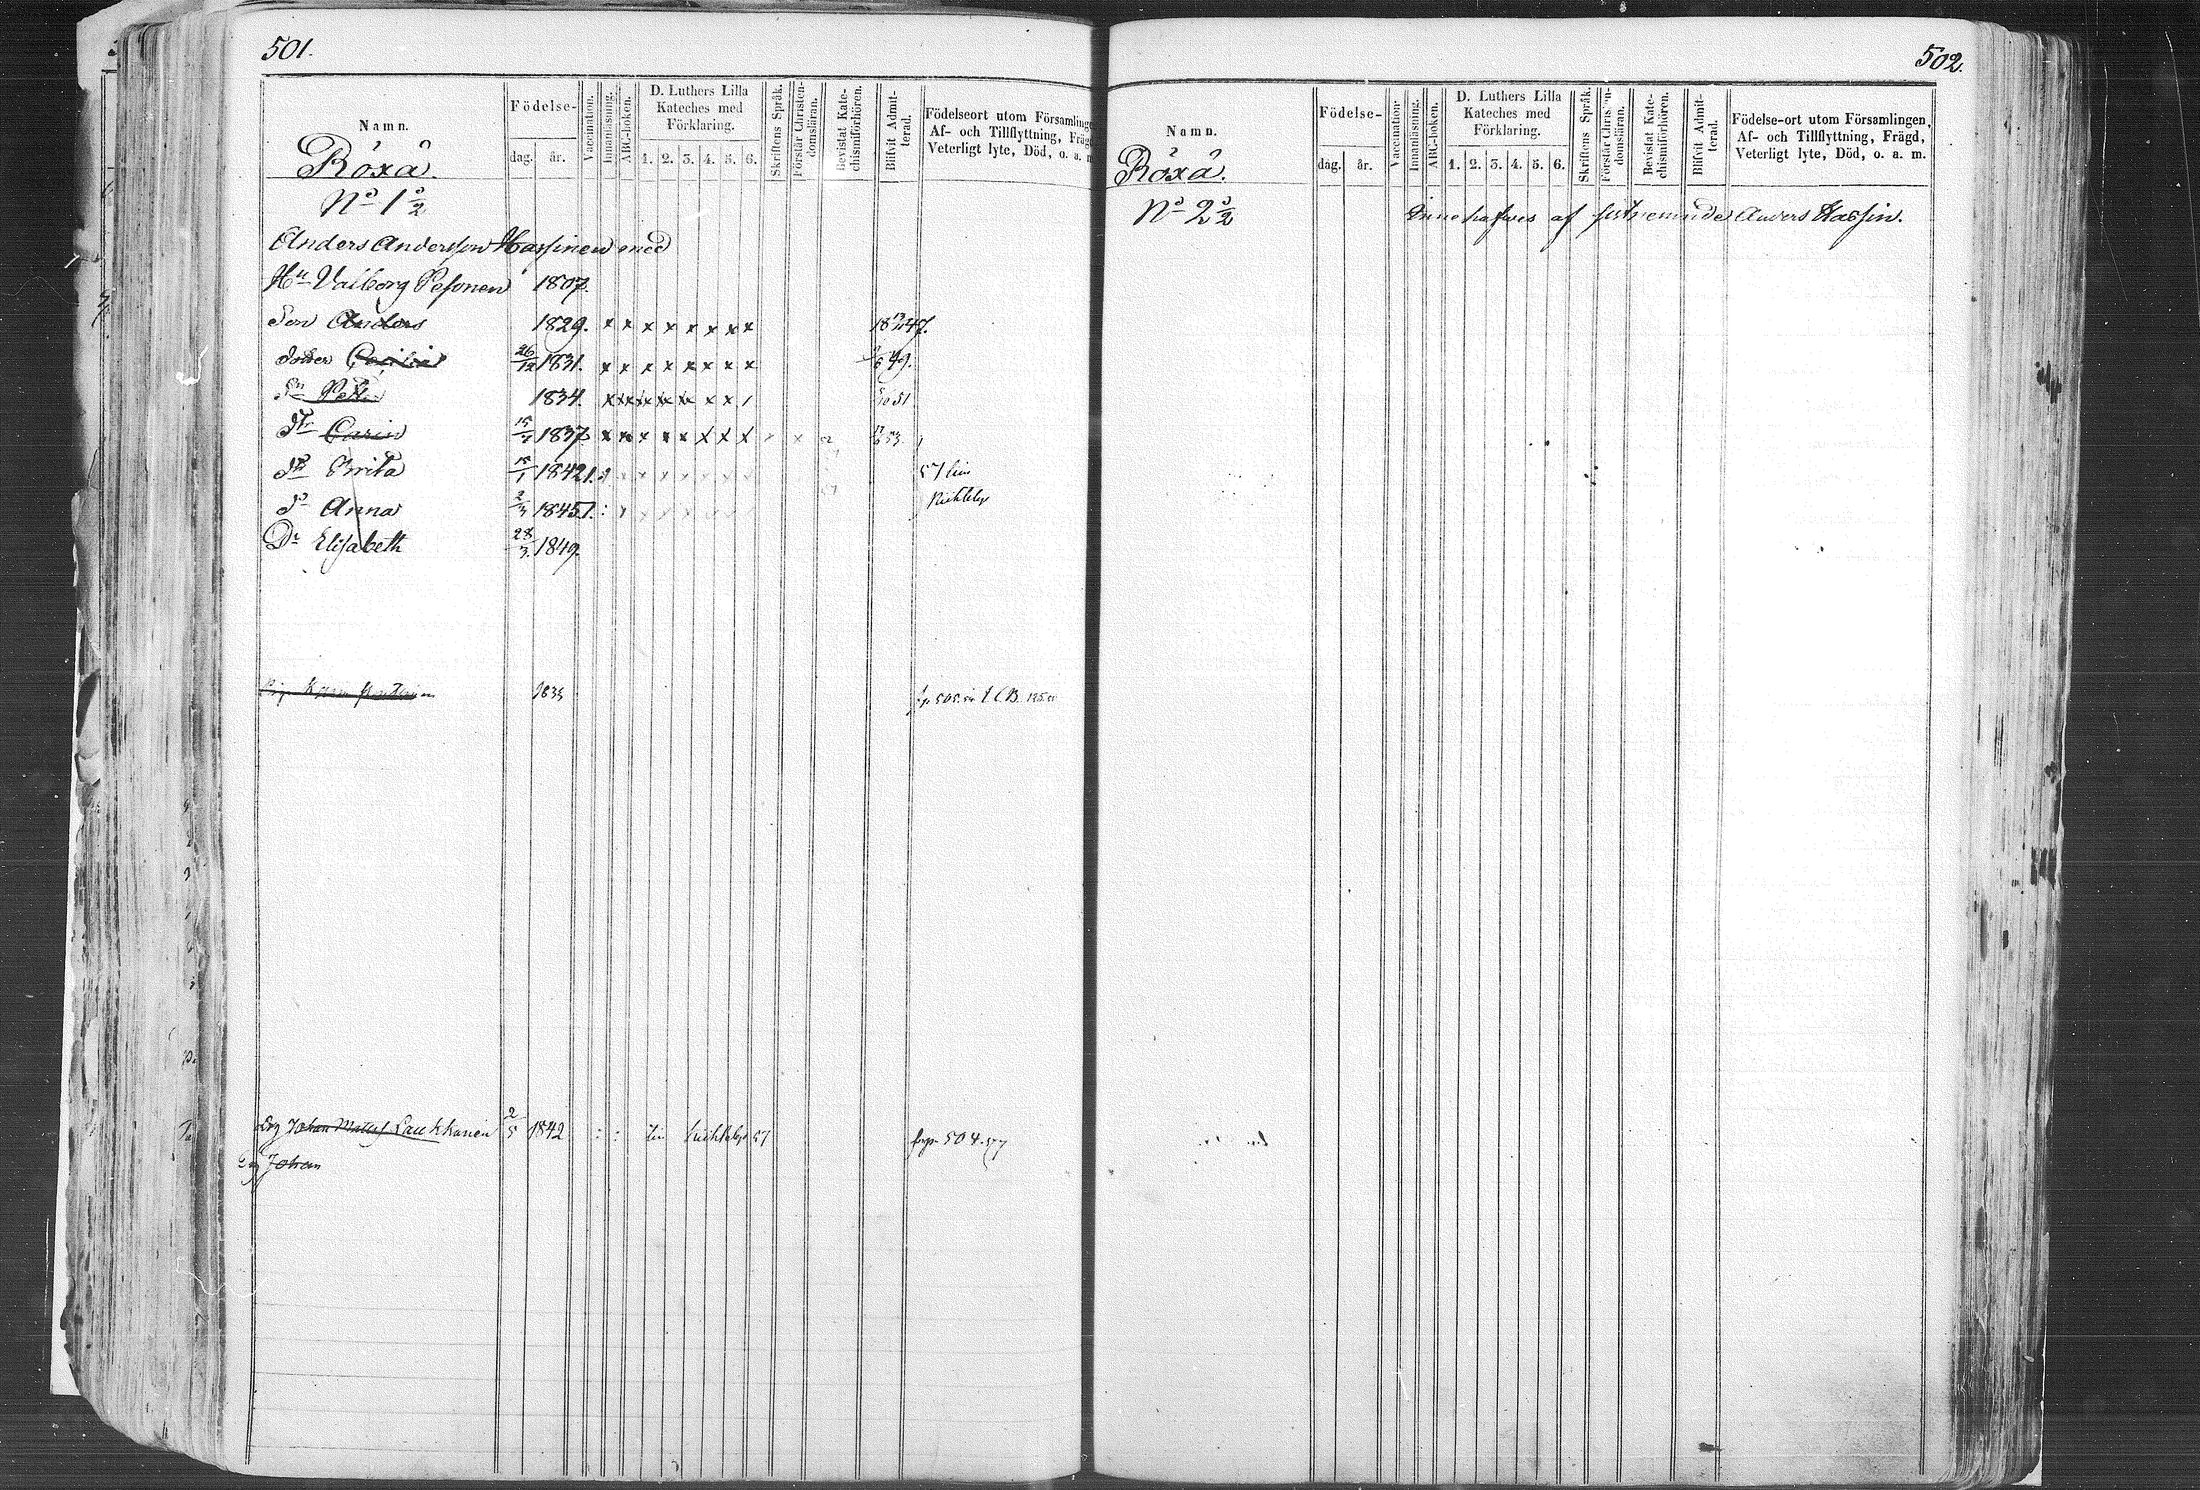 501.
Namn. Födelse- dag. år. Vaccination. Innanläsning. ABC-boken. D. Luthers Lilla Kateches med Förklaring. 1. 2. 3. 4. 5. 6. Skriftens Språk. Förstår Christendomsläran. Bevistat Katechismiförhören. Blifvit Admitterad. Födelseort utom Församlingen, Af- och Tillflyttning, Frägd, Veterligt lyte, Död, o. a. m.
Röxå.
No 1 1/2
Anders Andersson Hassinen med
Hu Valborg Pesonen 1807.
Son Anders 1829. x x x x x x x x 47.
Dotter Cecilia 26/12 1831. x x x x x x x x 49.
Sn Petter 1834. 51
Dr Carin 15/ 1837. x x x x x x x x 53
Dr Brita 15/1 1842 57
Dr Anna 2/3 1845
Dr Elisabeth 28/3. 1849.
1835 505
Drg Johan Matts Laukkanen 2/5 1842 57 504. 57
Johan
502.
Namn. Födelse- dag. år. Vaccination Innanläsning. ABC-boken. D. Luthers Lilla Kateches med Förklaring. 1. 2. 3. 4. 5. 6. Skriftens Språk. Förstår Christendomsläran. Bevistat Katechismiförhören. Blifvit Admitterad. Födelse-ort utom Församlingen, Af- och Tillflyttning, Frägd, Veterligt lyte, Död, o. a. m.
Röxå.
No 2 1/2 Innehafves af Anders Hassin.